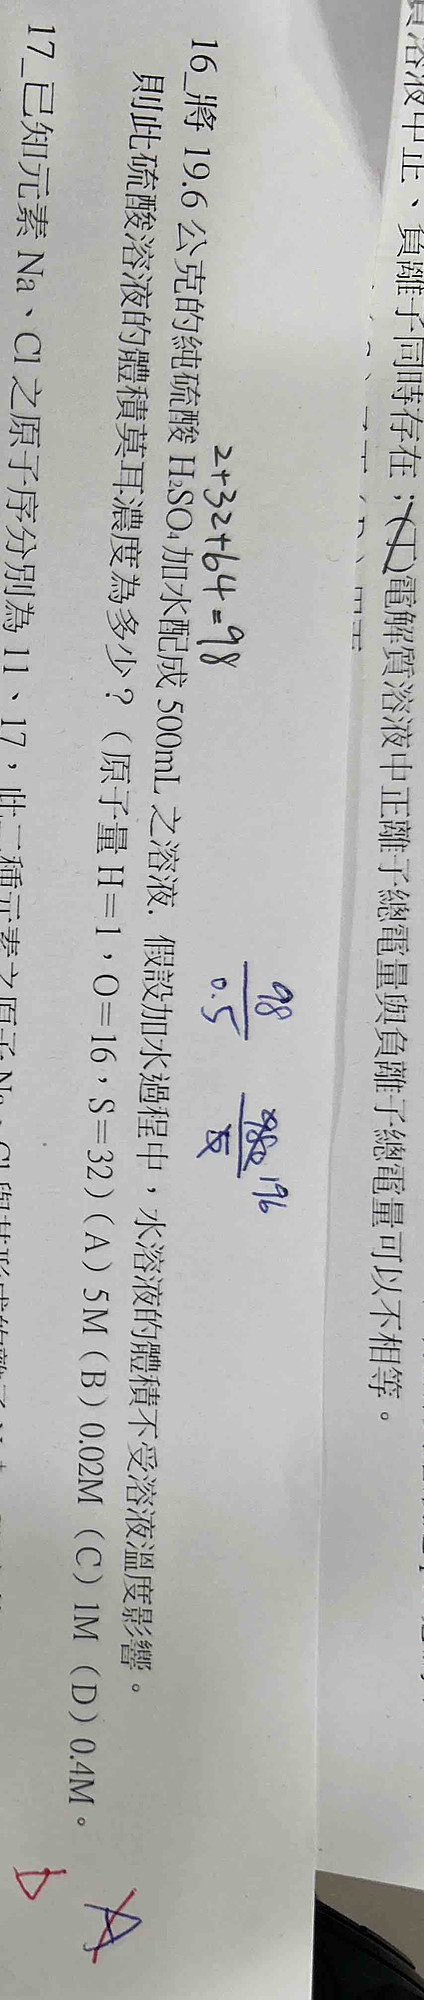 質溶液中正、負離子同時存在；(丁)電解質溶液中正離子總電量與負離子總電量可以不相等。
2+32+64=98
98
0.5
980
5
196
16_將 19.6 公克的純硫酸 H₂SO₄加水配成 500mL 之溶液．假設加水過程中，水溶液的體積不受溶液溫度影響。
則此硫酸溶液的體積莫耳濃度為多少？（原子量 H＝1，O＝16，S＝32)（A）5M（B）0.02M（C）1M（D）0.4M。
A
D
17_已知元素 Na、Cl 之原子序分別為 11、17，此二種元素之原子 Na、Cl 與其形成的離子